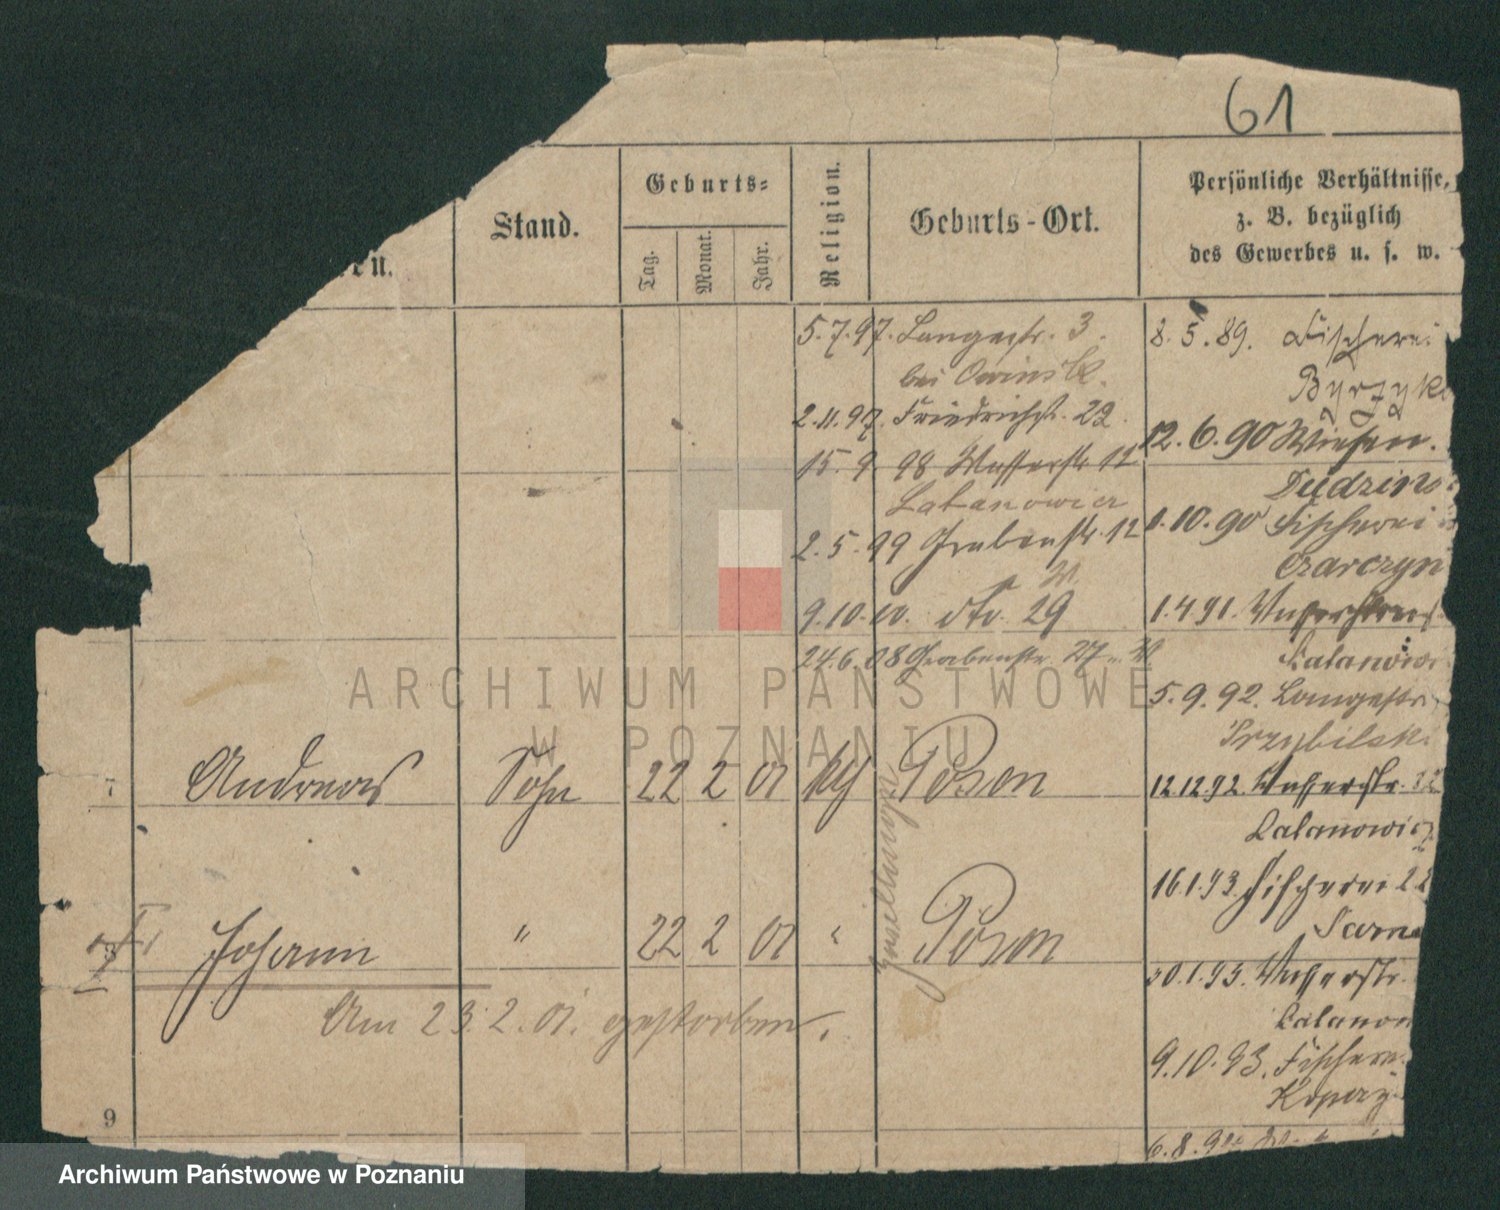 61
Stand.
Geburts-
Tag.
Monat.
Jahr.
Religion.
Geburts-Ort.
Persönliche Verhältnisse,
z. B. bezüglich
des Gewerbes u. s. w.
5.7.97. Langestr. 3.
bei Owinsk.
2.11.97. Friedrichstr. 22
15.9.98 Wasserstr. 12
Latanowicz
2.5.99 Grabenstr. 12
9.10.00. dto. 29
24.6.08 Grabenstr. 27
8.5.89. Fischerei
12.6.90 Wiesen.
1.10.90 Fischerei
1.4.91. Wasserstr.
Latanowi
5.9.92. Langestr.
Przybilski
12.12.92. Wasserstr. 12
Latanowicz
16.1.93. Fischerei 22
30.1.93. Wasserstr.
Latanow
9.10.93. Fischerei
6.8.94
7 Andreas Sohn 22 2 01 kth Posen
8 Johann " 22 2 01 " Posen
Am 23.2.01. gestorben.
9
ARCHIWUM PAŃSTWOWE
W POZNANIU
Archiwum Państwowe w Poznaniu